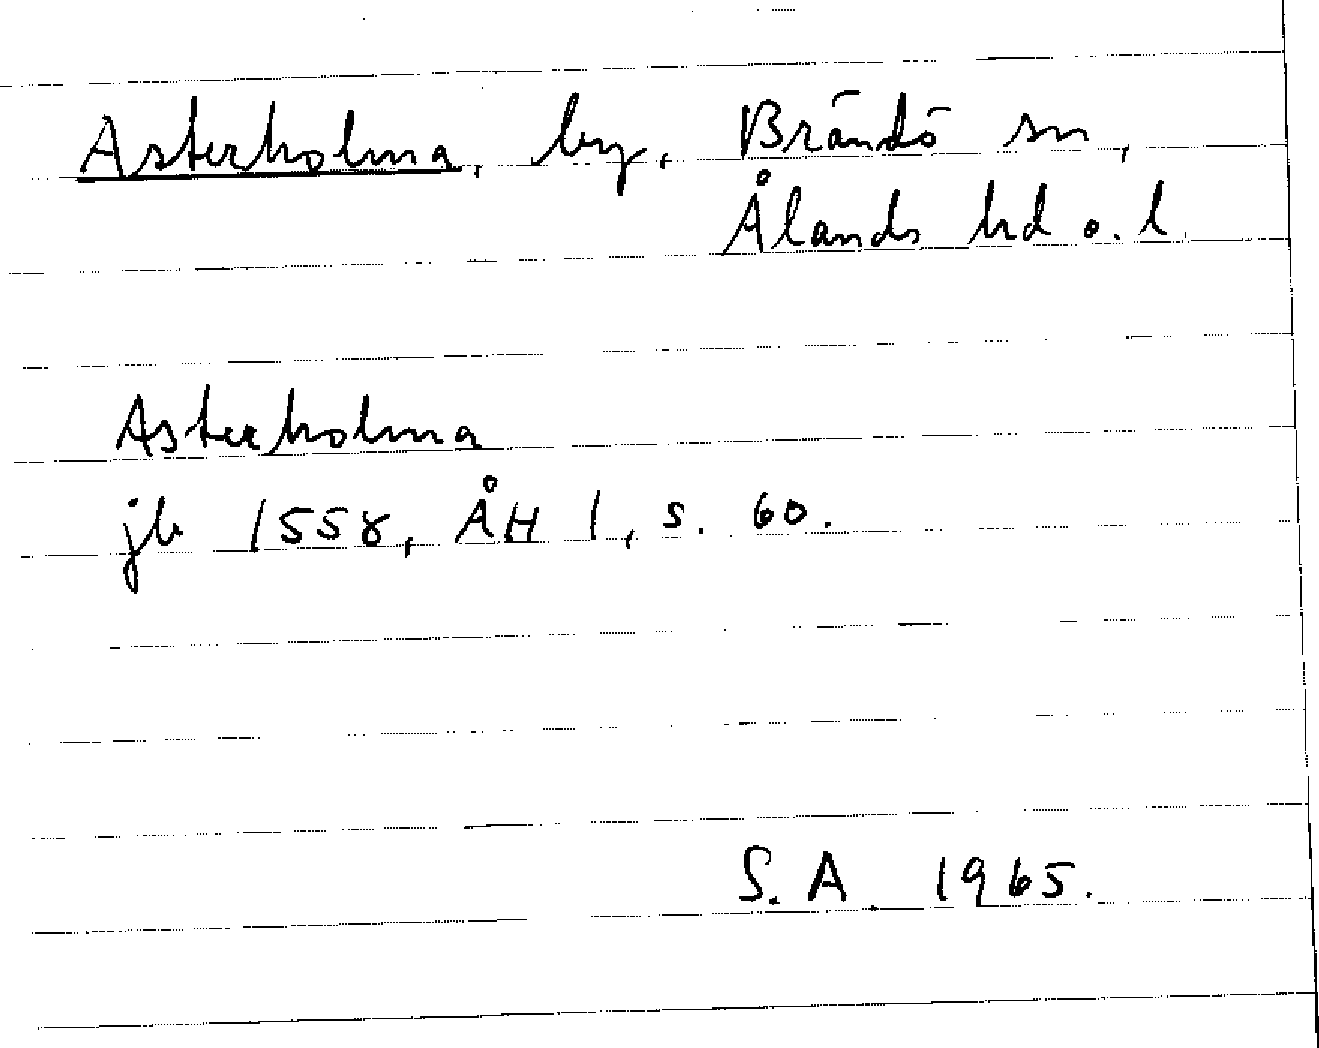 Asterholma, by, Brändö sn,
Ålands hd o. l.
Asterholma
jb 1558, ÅH 1, s. 60.
S. A. 1965.